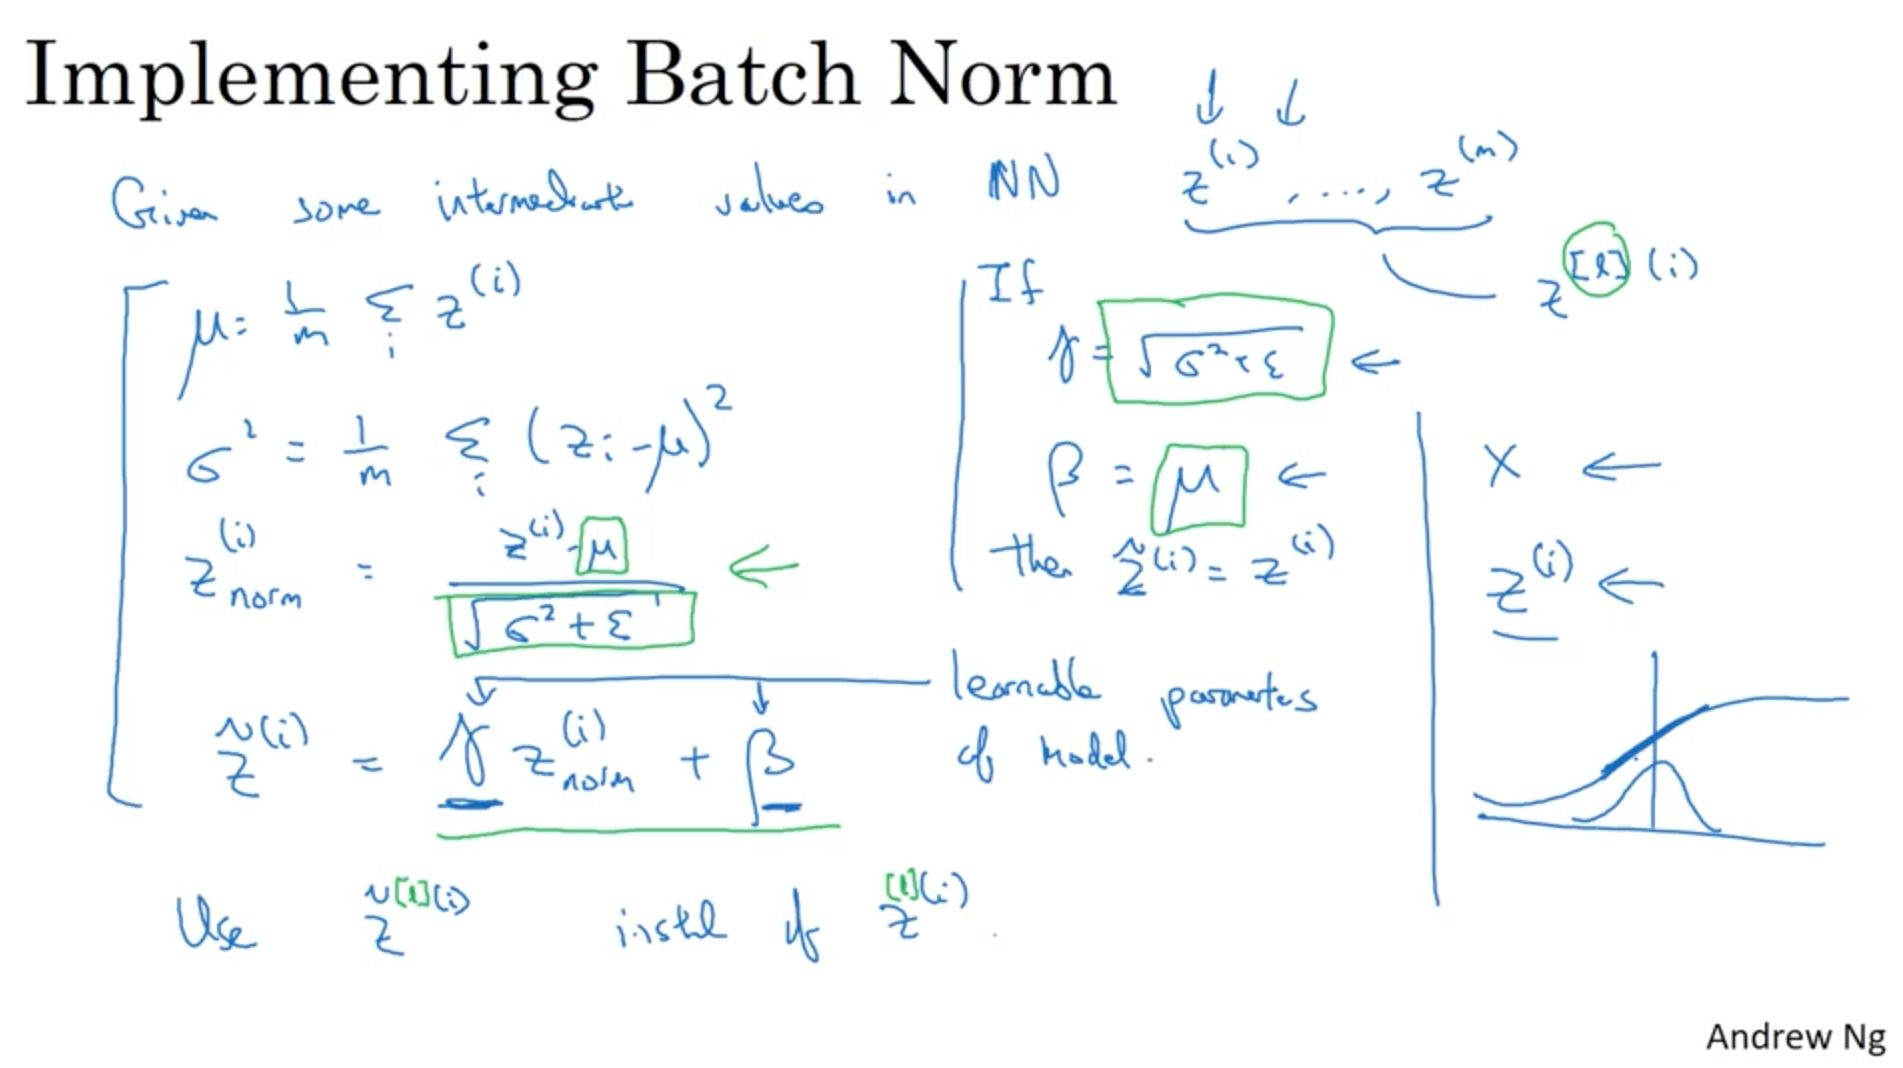 Implementing Batch Norm
Given some intermediate values in NN z^(i) , ...., z^(m)
z^[l](i)
μ = 1/m Σ_i z^(i)
σ² = 1/m Σ_i (z_i - μ)²
z^(i)_norm = (z^(i) - μ) / √(σ² + ε)
z̃^(i) = γ z^(i)_norm + β
learnable parameters
of model.
If
γ = √(σ² + ε) ←
β = μ ←
then z̃^(i) = z^(i)
X ←
z^(i) ←
Use z̃^[l](i) of z^[l](i) .
Andrew Ng